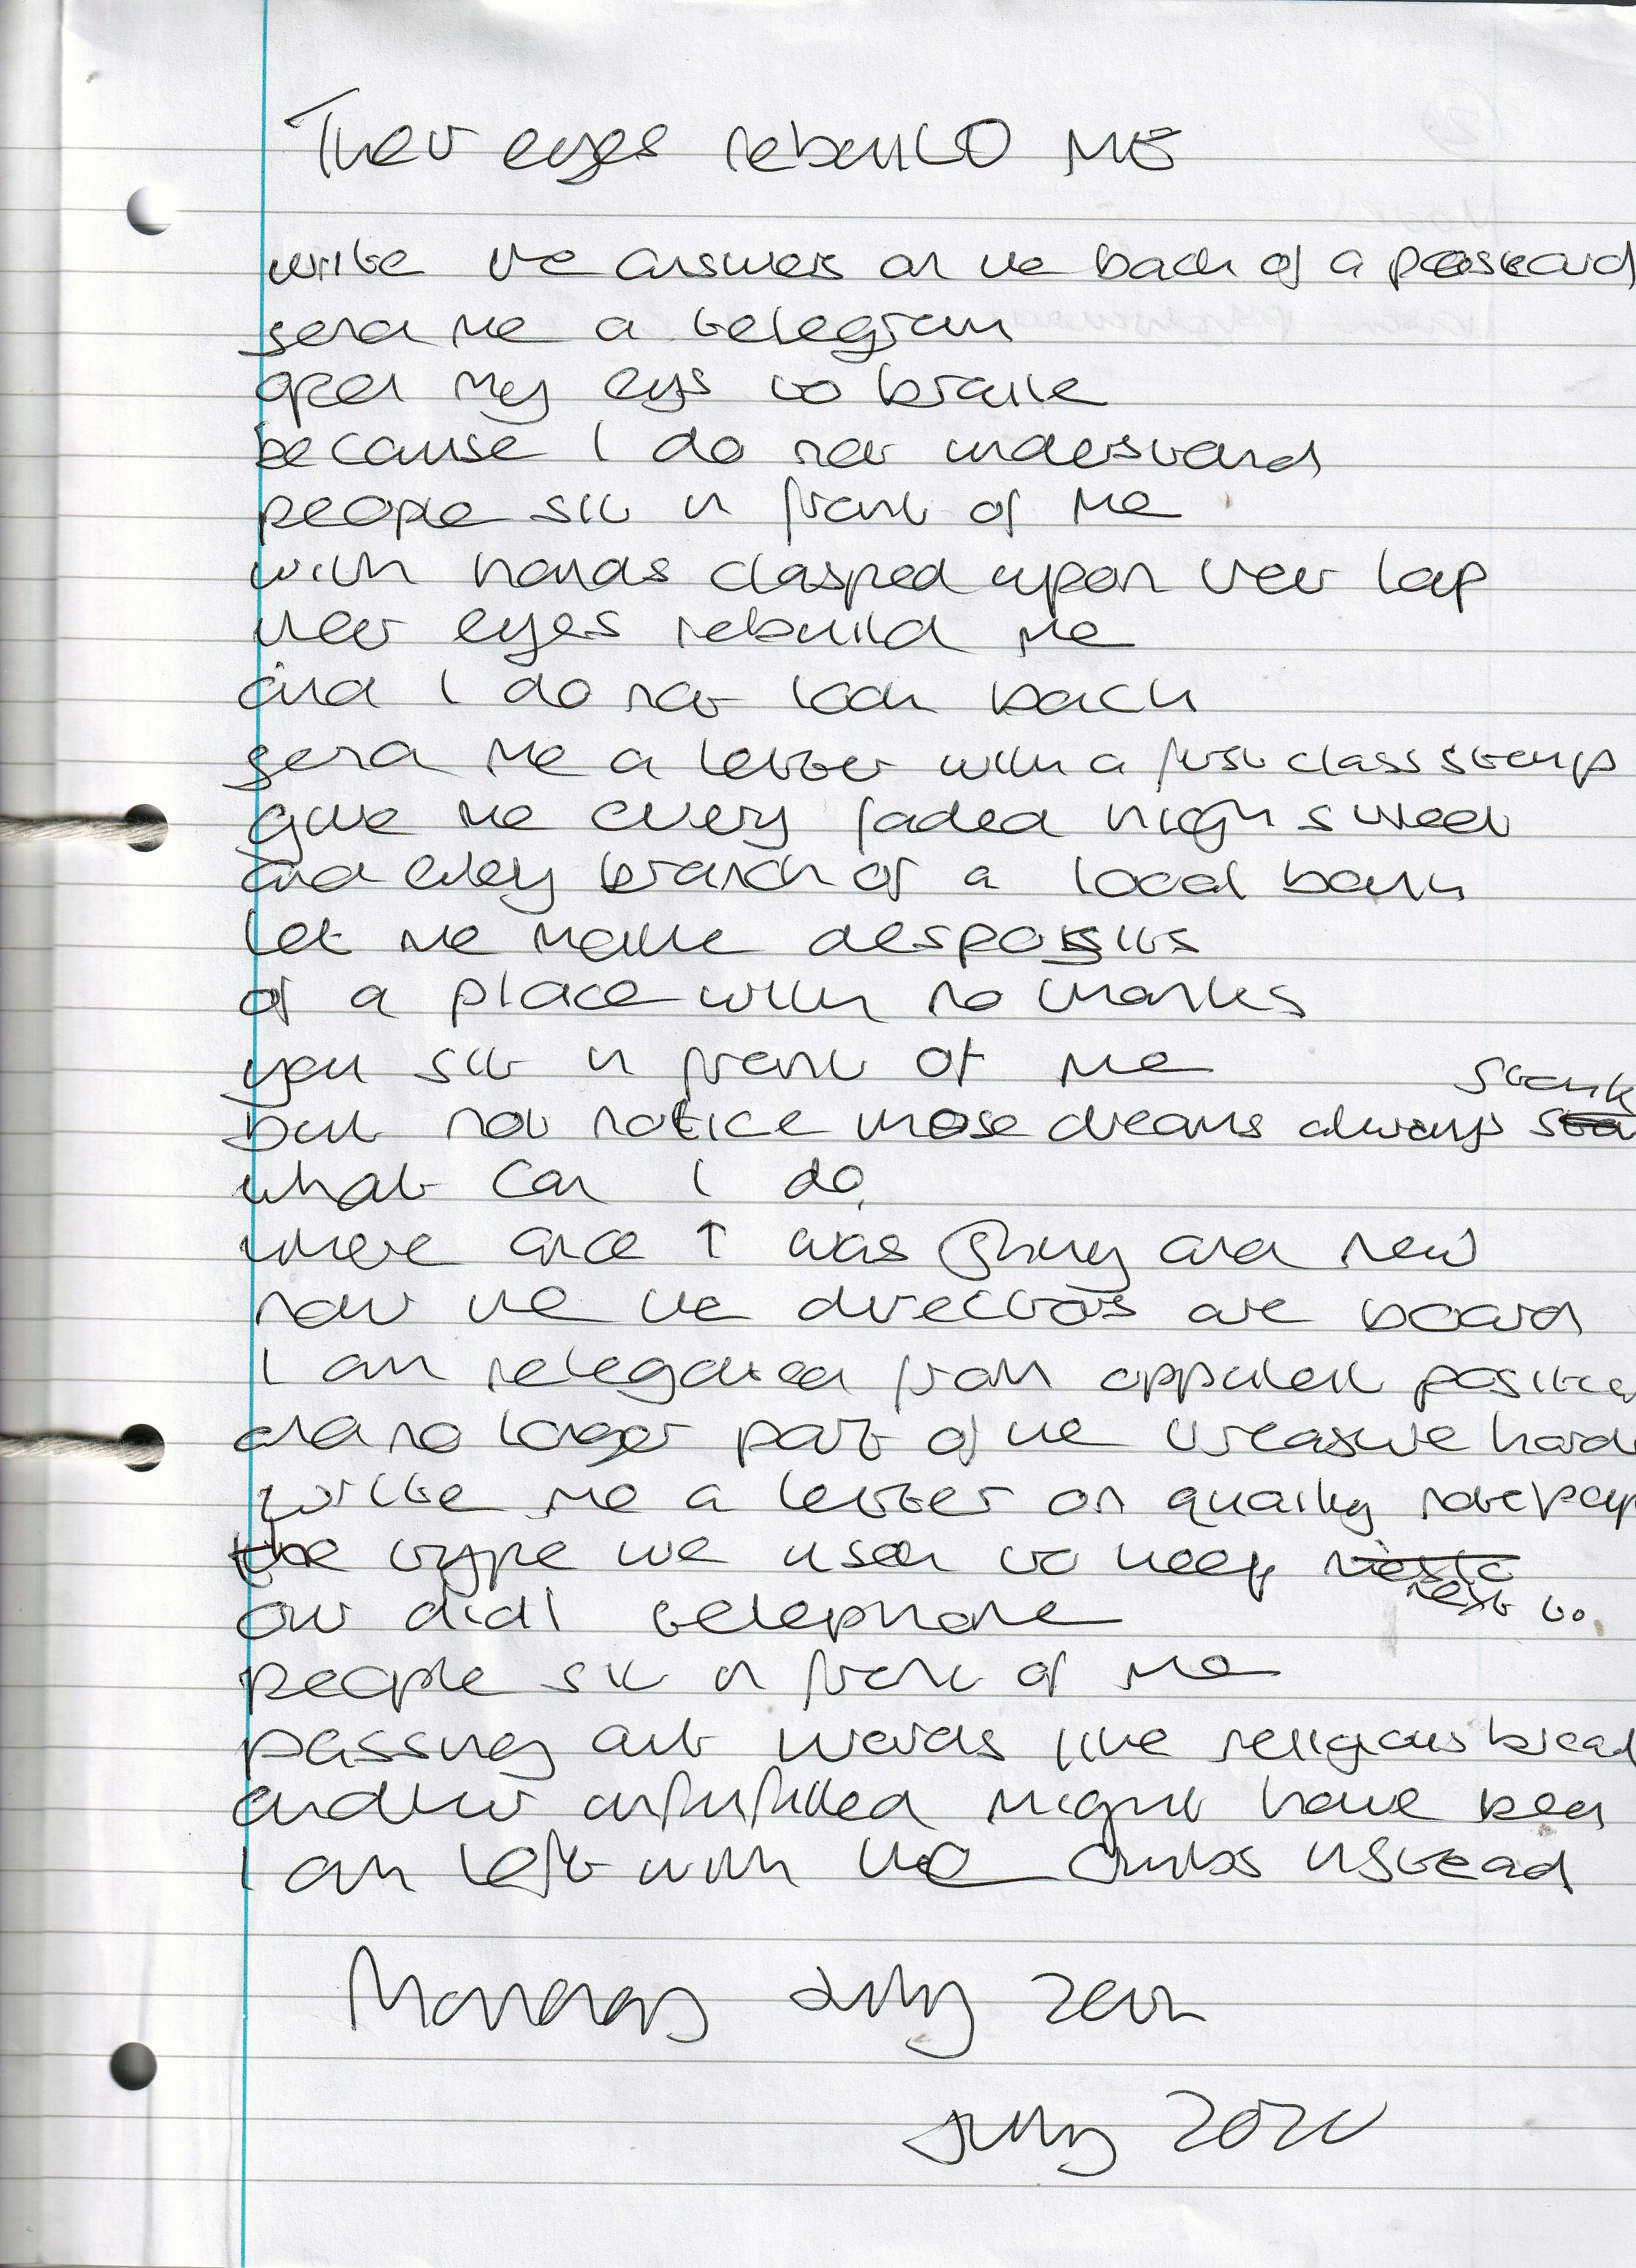 Their eyes rebuild ME
write the answers on the back of a postcard
send me a telegram
open my eyes to braille
because I do not understand
people sit in front of me
with hands clasped upon their lap
their eyes rebuild me
and I do not look back
send me a letter with a first class stamp
give me every faded high street
and every branch of a local bank
let me make desposits
of a place with no thanks
you sit in front of me
but not notice those dreams always stank
what can I do
where once I was shiny and new
now the the directors are board
I am relegated from oppulent position
and no longer part of the treasure hoard
write me a letter on quality notepaper
the type we used to keep next to
our dial telephone
people sit in front of me
passing out words like religious bread
and their unfulfilled might have been
I am left with the crumbs instead
Monday July
July 2020